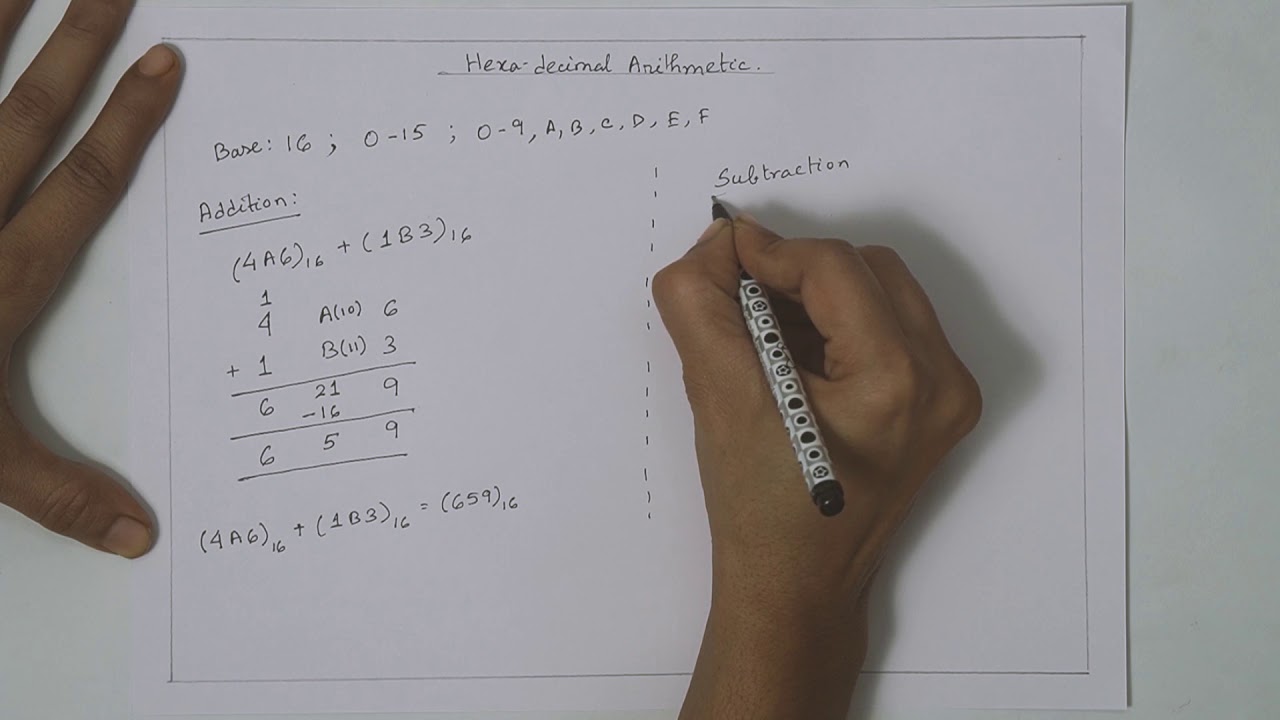 Hexa-decimal Arithmetic.
Base: 16 ; 0-15 ; 0-9, A, B, C, D, E, F
Addition:
(4A6)16 + (1B3)16
1
4 A(10) 6
+ 1 B(11) 3
6 21 9
-16
6 5 9
(4A6)16 + (1B3)16 = (659)16
Subtraction